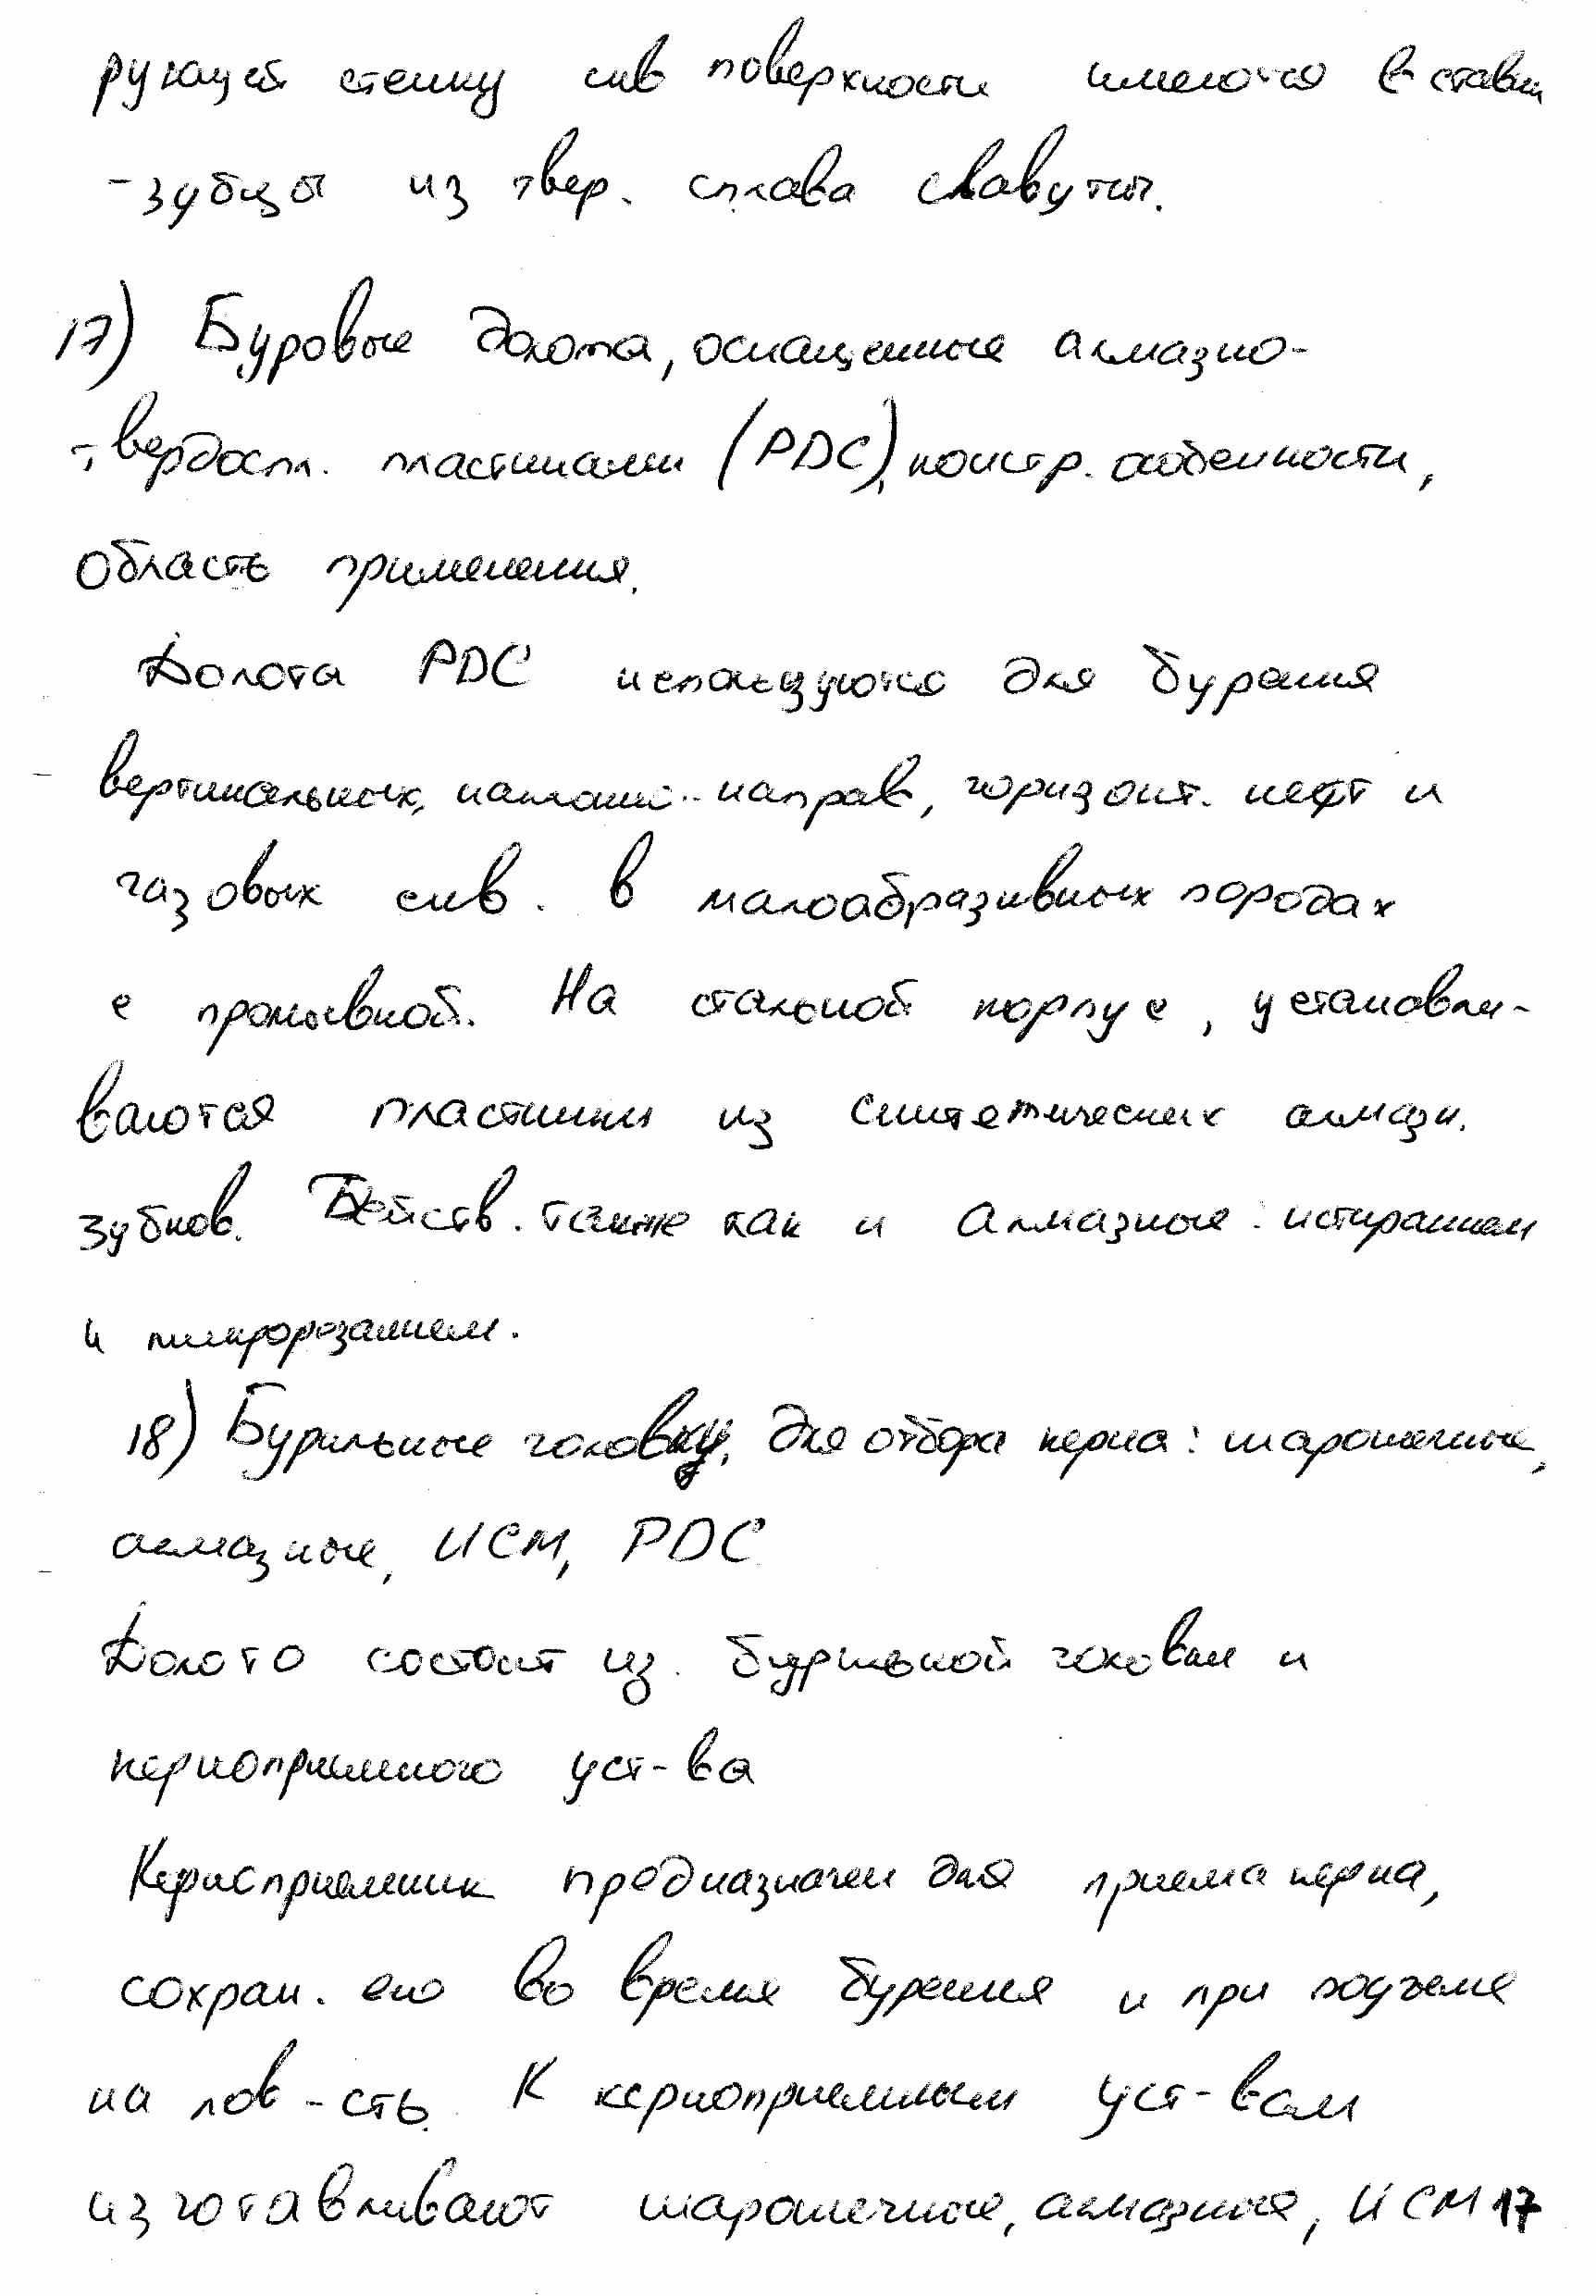 рующей стенку скв поверхности имеются вставки
-зубцы из твер. сплава славутич.
17) Буровые долота, оснащенные алмазно-
твердоспл. пластинами (PDC), констр. особенности,
область применения.
Долота PDC используются для бурения
вертикальных, наклонно-направ, горизонт. нефт и
газовых скв. в малоабразивных породах
с промывкой. На стальной корпус, устанавли-
ваются пластинки из синтетических алмазн.
зубков. Действ. также как и алмазные: истиранием
и микрорезанием.
18) Бурильные головку, для отбора керна: шарошечные,
алмазные, ИСМ, PDC
Долото состоит из бурильной головки и
керноприемного уст-ва
Керноприемник предназначен для приема керна,
сохран. его во время бурения и при подъеме
на пов-сть. К керноприемным уст-вам
изготавливают шарошечные, алмазные, ИСМ 17